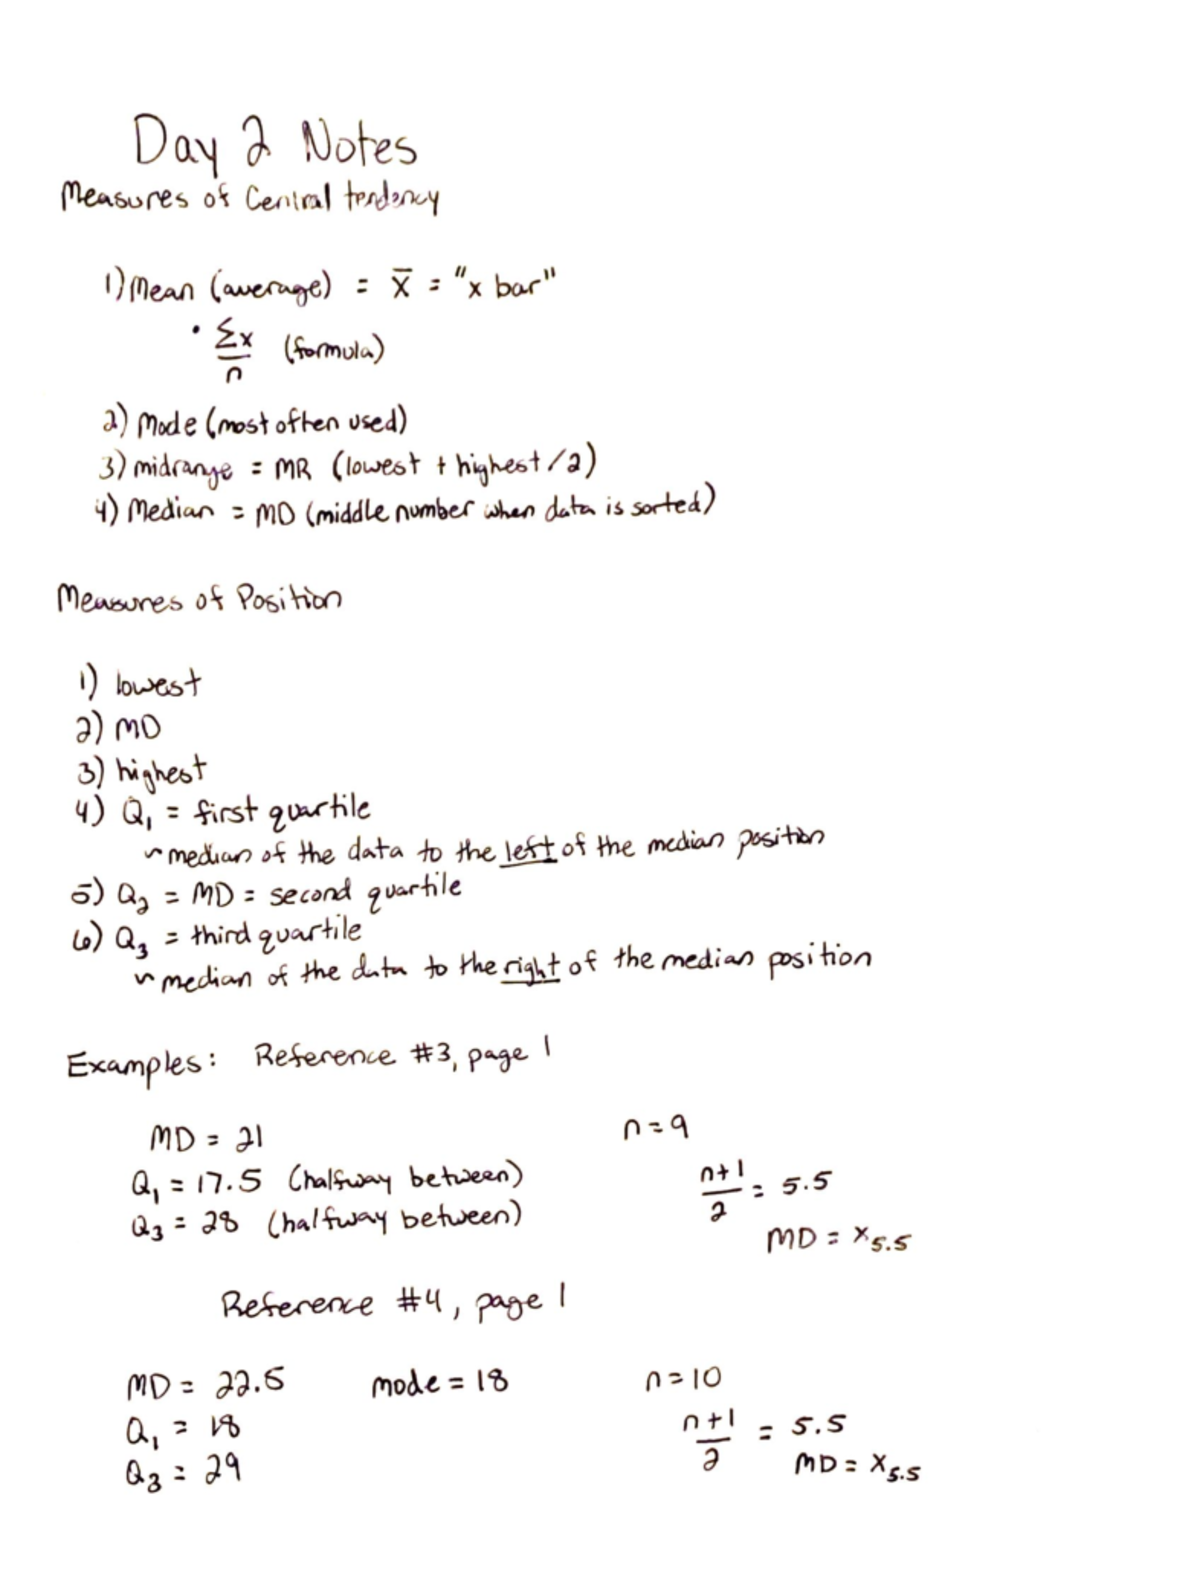 Day 2 Notes
Measures of Central tendency
1) Mean (average) = x̄ = "x bar"
• Σx/n (formula)
2) Mode (most often used)
3) midrange = MR (lowest + highest/2)
4) Median = MD (middle number when data is sorted)
Measures of Position
1) lowest
2) MD
3) highest
4) Q₁ = first quartile
~ median of the data to the left of the median position
5) Q₂ = MD = second quartile
6) Q₃ = third quartile
~ median of the data to the right of the median position
Examples: Reference #3, page 1
MD = 21 n = 9
Q₁ = 17.5 (halfway between) n+1/2 = 5.5
Q₃ = 28 (halfway between) MD = x₅.₅
Reference #4, page 1
MD = 22.5 mode = 18 n = 10
Q₁ = 18 n+1/2 = 5.5
Q₃ = 29 MD = x₅.₅